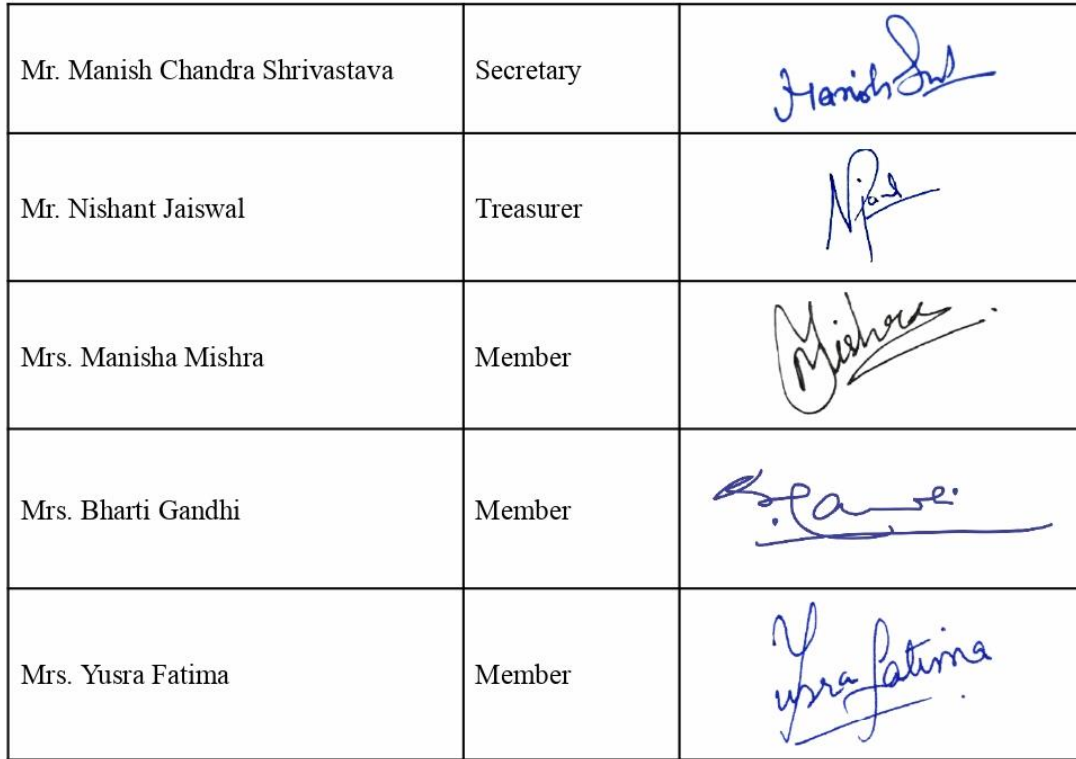 Mr. Manish Chandra Shrivastava Secretary Manish
Mr. Nishant Jaiswal Treasurer
Mrs. Manisha Mishra Member Mishra
Mrs. Bharti Gandhi Member
Mrs. Yusra Fatima Member Yusra Fatima